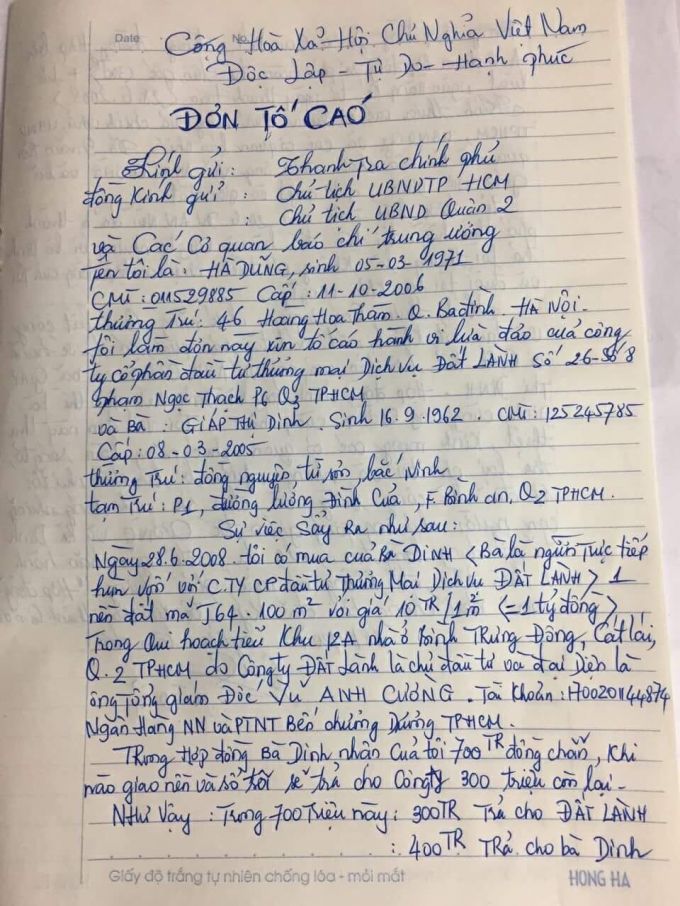 Date No.
Cộng Hoà Xả Hội Chủ Nghỉa Việt Nam
Độc Lập - Tự Do - Hạnh phúc
ĐƠN TỐ CÁO
Kính gửi : Thanh Tra chính phủ
đồng Kính gửi : Chủ tịch UBNDTP HCM
: Chủ tịch UBND Quận 2
và Các Cơ quan báo chí trung ương
Tên tôi là : HÀ DŨNG, sinh 05-03-1971
CMT : 011529885 Cấp : 11-10-2006
thường Trú : 46 Hoàng Hoa Thám. Q. Ba đình. HÀ NỘI.
tôi làm đơn này xin tố cáo hành vi lừa đảo của công
ty cổ phần đầu tư thương mại Dịch Vụ ĐẤT LÀNH Số 26-Số 8
phạm Ngọc Thạch P6 Q3 TPHCM
và Bà : GIÁP THỊ Dinh, Sinh 16.9.1962. CMT : 125245785
Cấp : 08-03-2005
thường Trú : đồng nguyên, từ sơn, bắc Ninh
tạm Trú : P1, đường lương Đình Của, F. Bình an, Q2 TPHCM.
Sự việc Sẩy Ra như sau :
Ngày 28.6.2008. tôi có mua của BÀ DINH < Bà là người trực tiếp
hụn vốn với CTY CP đầu tư Thương Mại Dịch vụ ĐẤT LÀNH > 1
nền đất mã J64. 100 m² với giá 10TR/1m² (= 1 tỷ đồng)
Trong Qui hoạch tiểu Khu 12A nhà ở Bình Trưng Đông, Cát lái,
Q. 2 TPHCM do Công ty ĐẤT Lành là chủ đầu tư và đại Diện là
ông Tổng giám Đốc VŨ ANH CƯỜNG. Tài Khoản : 1700201144874
Ngân Hàng NN và PTNT Bến chương Dương TPHCM.
Trong Hợp đồng Bà Dinh nhận Của tôi 700TR đồng chẵn, Khi
nào giao nền và sổ tôi sẽ trả cho Công ty 300 triệu còn lại.
Như Vậy : Trong 700 Triệu này : 300TR Trả cho ĐẤT LÀNH
: 400TR TRả cho bà Dinh
Giấy độ trắng tự nhiên chống lóa - mỏi mắt HONG HA